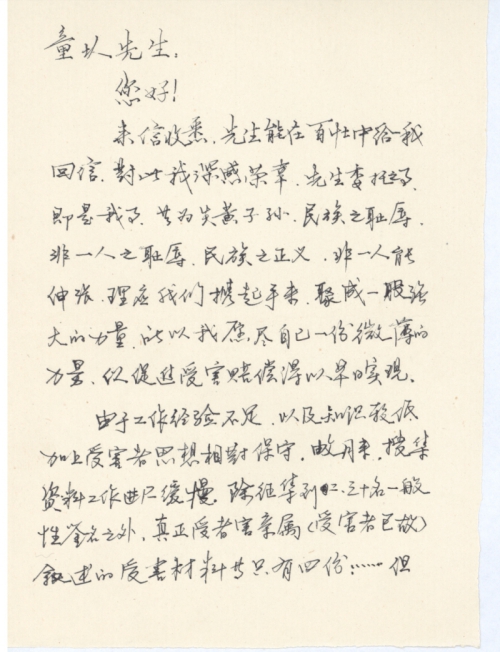 童 先生:
您好!
来信收悉,先生能在百忙中给我
回信,對此我深感荣幸,先生委托之事,
即是我事,共为炎黄子孙,民族之耻辱,
非一人之耻辱,民族之正义,非一人能
伸张,理应我们携起手来,聚成一股强
大的力量,所以我愿尽自己一份微薄的
力量,促进受害赔偿得以早日实现。
由于工作经验不足,以及知识较低
加上受害者思想相對保守,数月来,搜集
资料工作 缓慢,除征集到二、三十名一般
性签名之外,真正受害者亲属(受害者已故)
叙述的受害材料共只有四份……但